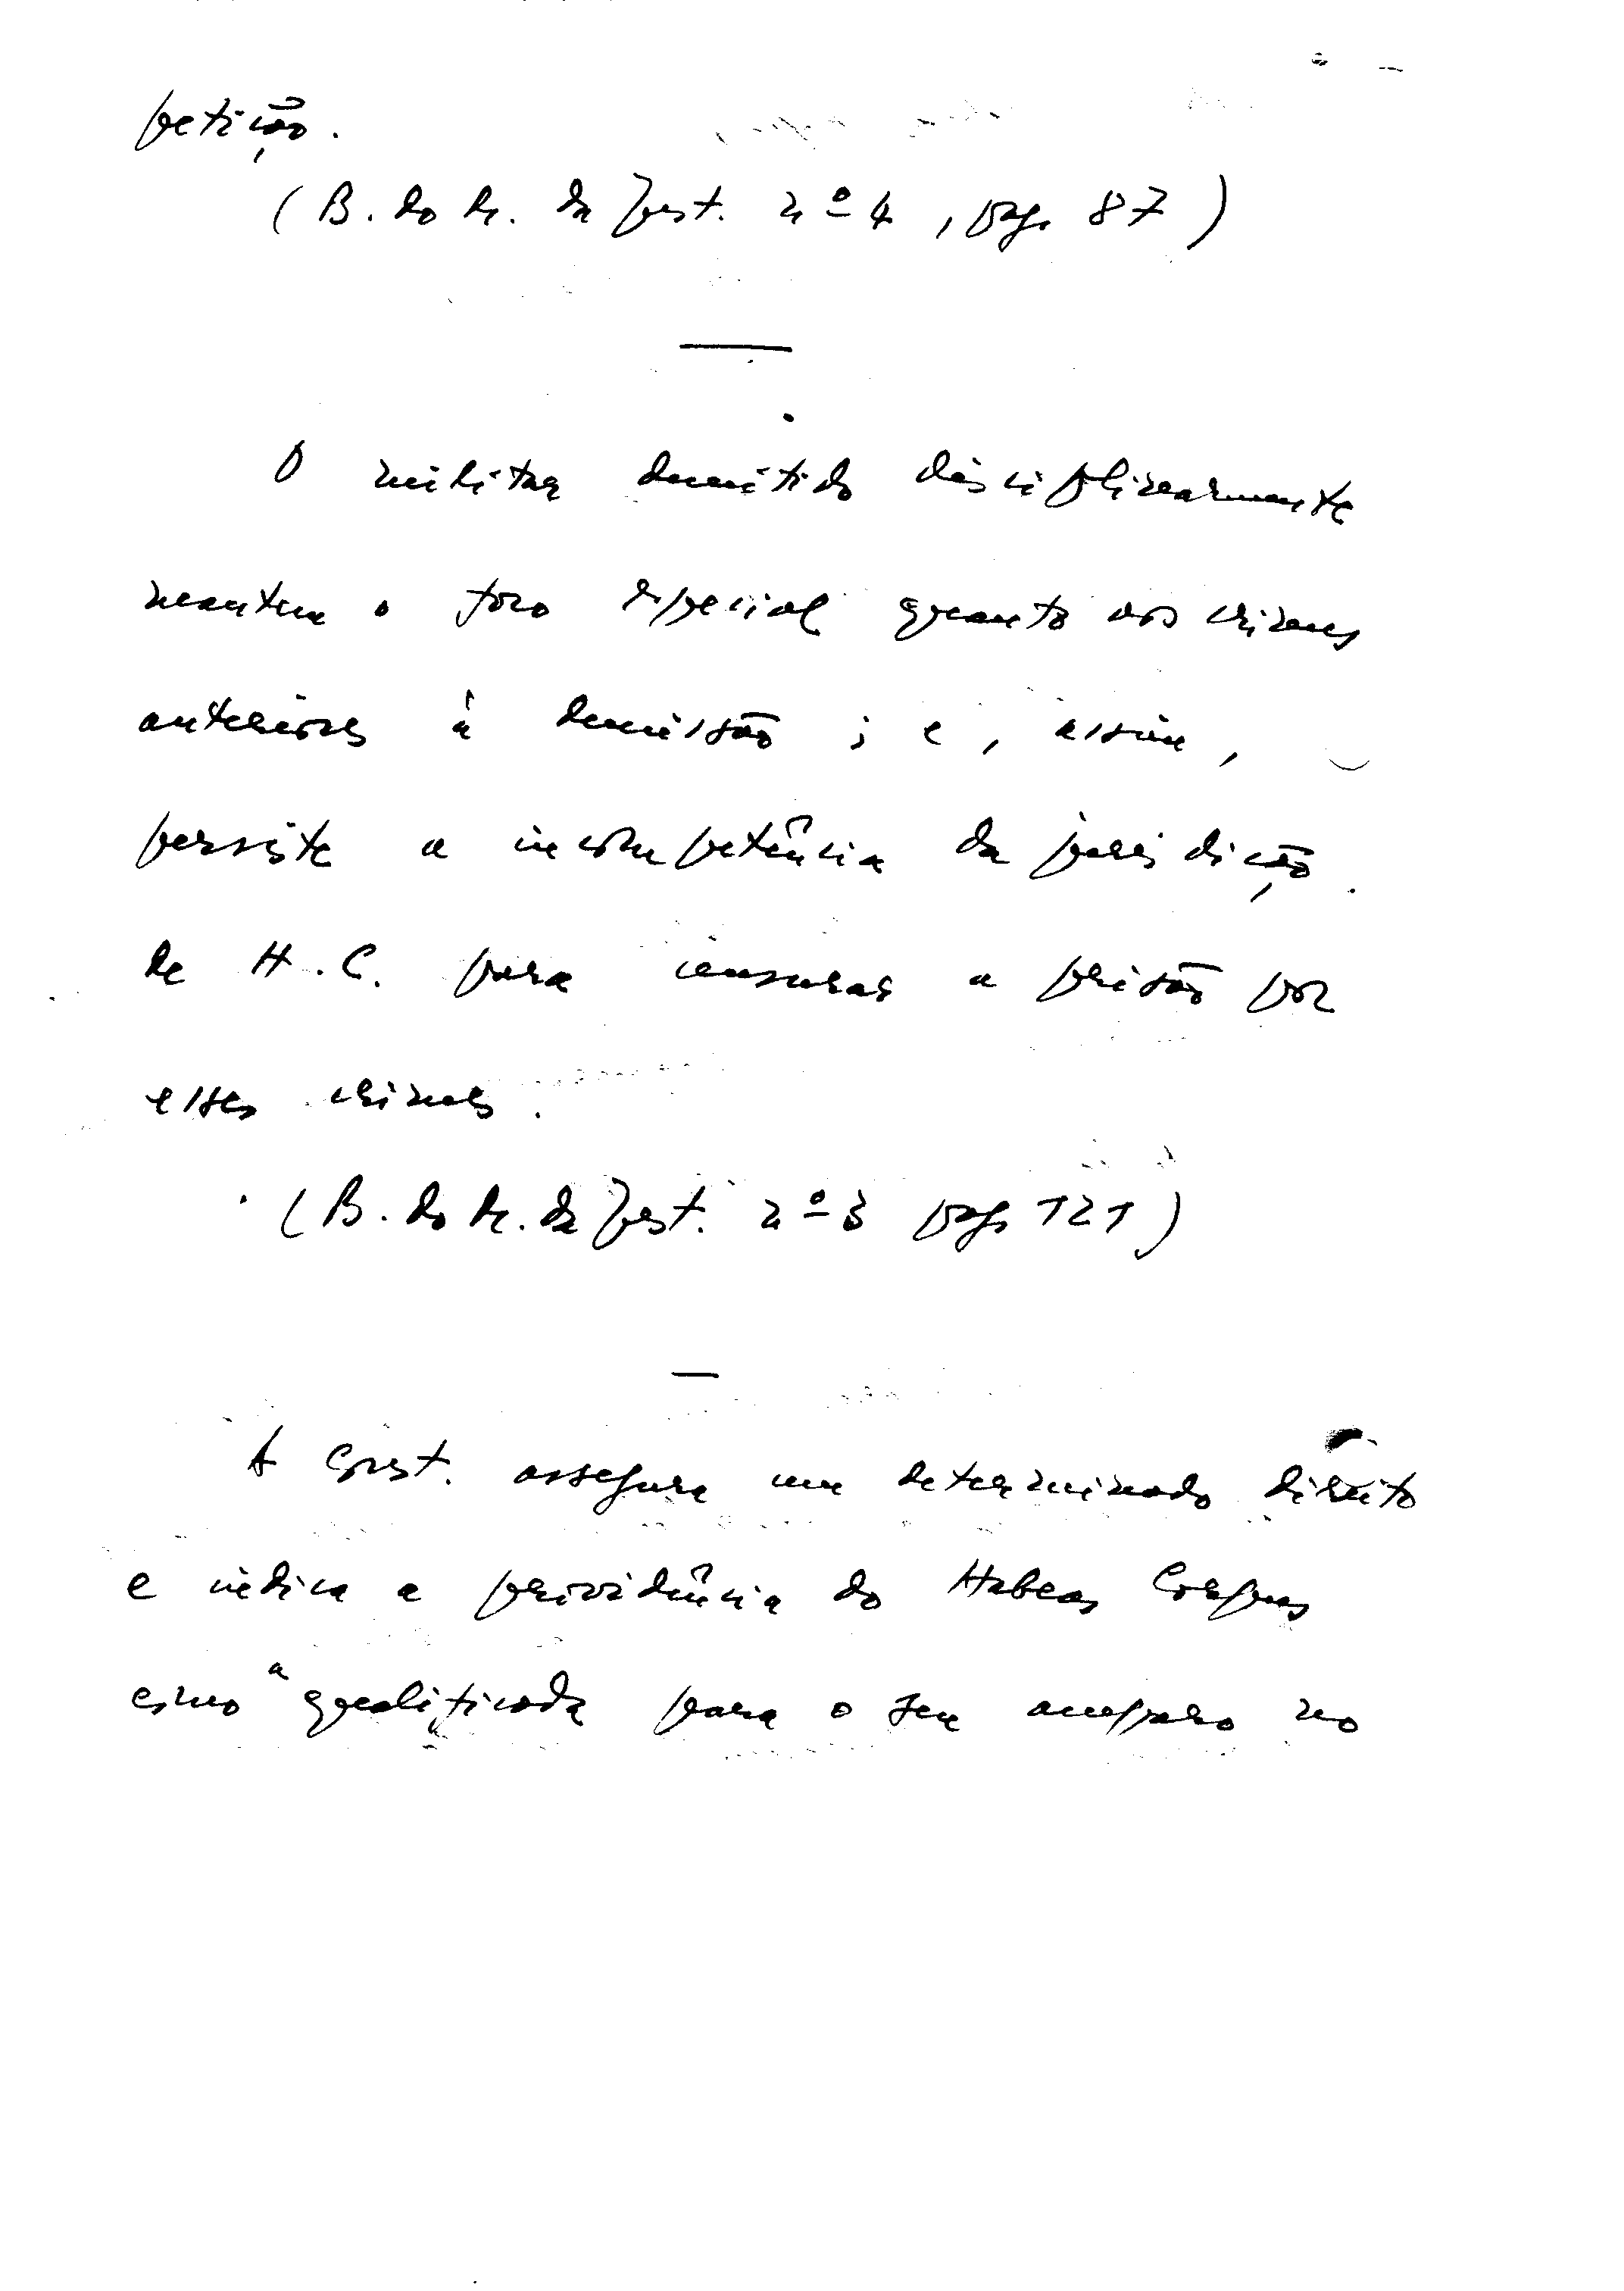 petição.
(B. do M. da Just. nº 4, pag. 87)
O militar demitido disciplinarmente
mantem o foro especial quanto aos crimes
anteriores à demissão; e, assim,
persiste a incompetência da jurisdição
de H.C. para censurar a prisão por
esses crimes.
(B. do M. da Just. nº 3 pag. 121)
A Const. assegura um determinado direito
e indica a providência do Habeas Corpus
como a qualificada para o seu amparo no